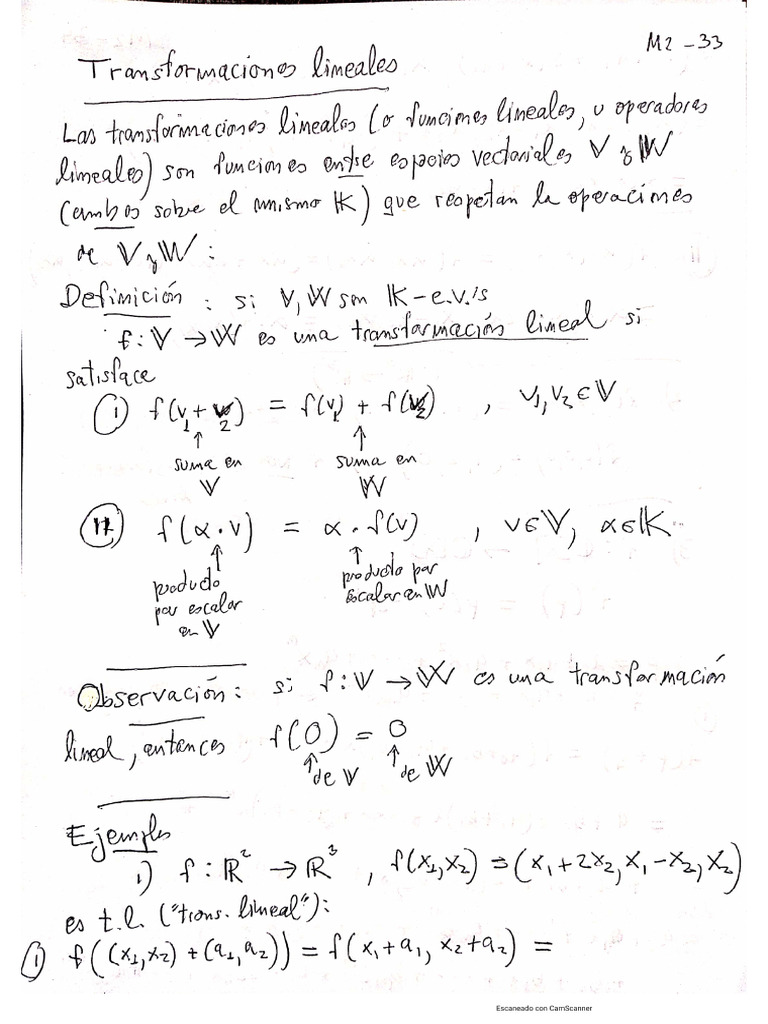 M2 - 33
Transformaciones lineales
Las transformaciones lineales (o funciones lineales, u operadores
lineales) son funciones entre espacios vectoriales V y W
(ambos sobre el mismo K) que respetan la operaciones
de V y W :
Definición : si V, W son K-e.v.'s
f : V → W es una transformación lineal si
satisface
(i) f(v₁ + v₂) = f(v₁) + f(v₂) , v₁, v₂ ∈ V
↑ ↑
suma en suma en
V W
(ii) f(α · v) = α · f(v) , v ∈ V, α ∈ K
↑ ↑
producto producto por
por escalar escalar en W
en V
Observación : si f : V → W es una transformación
lineal, entonces f(0) = 0
↑ de V ↑ de W
Ejemplos
1) f : ℝ² → ℝ³ , f(x₁, x₂) = (x₁ + 2x₂, x₁ - x₂, x₂)
es t.l. ("trans. lineal") :
(i) f((x₁, x₂) + (a₁, a₂)) = f(x₁ + a₁, x₂ + a₂) =
Escaneado con CamScanner